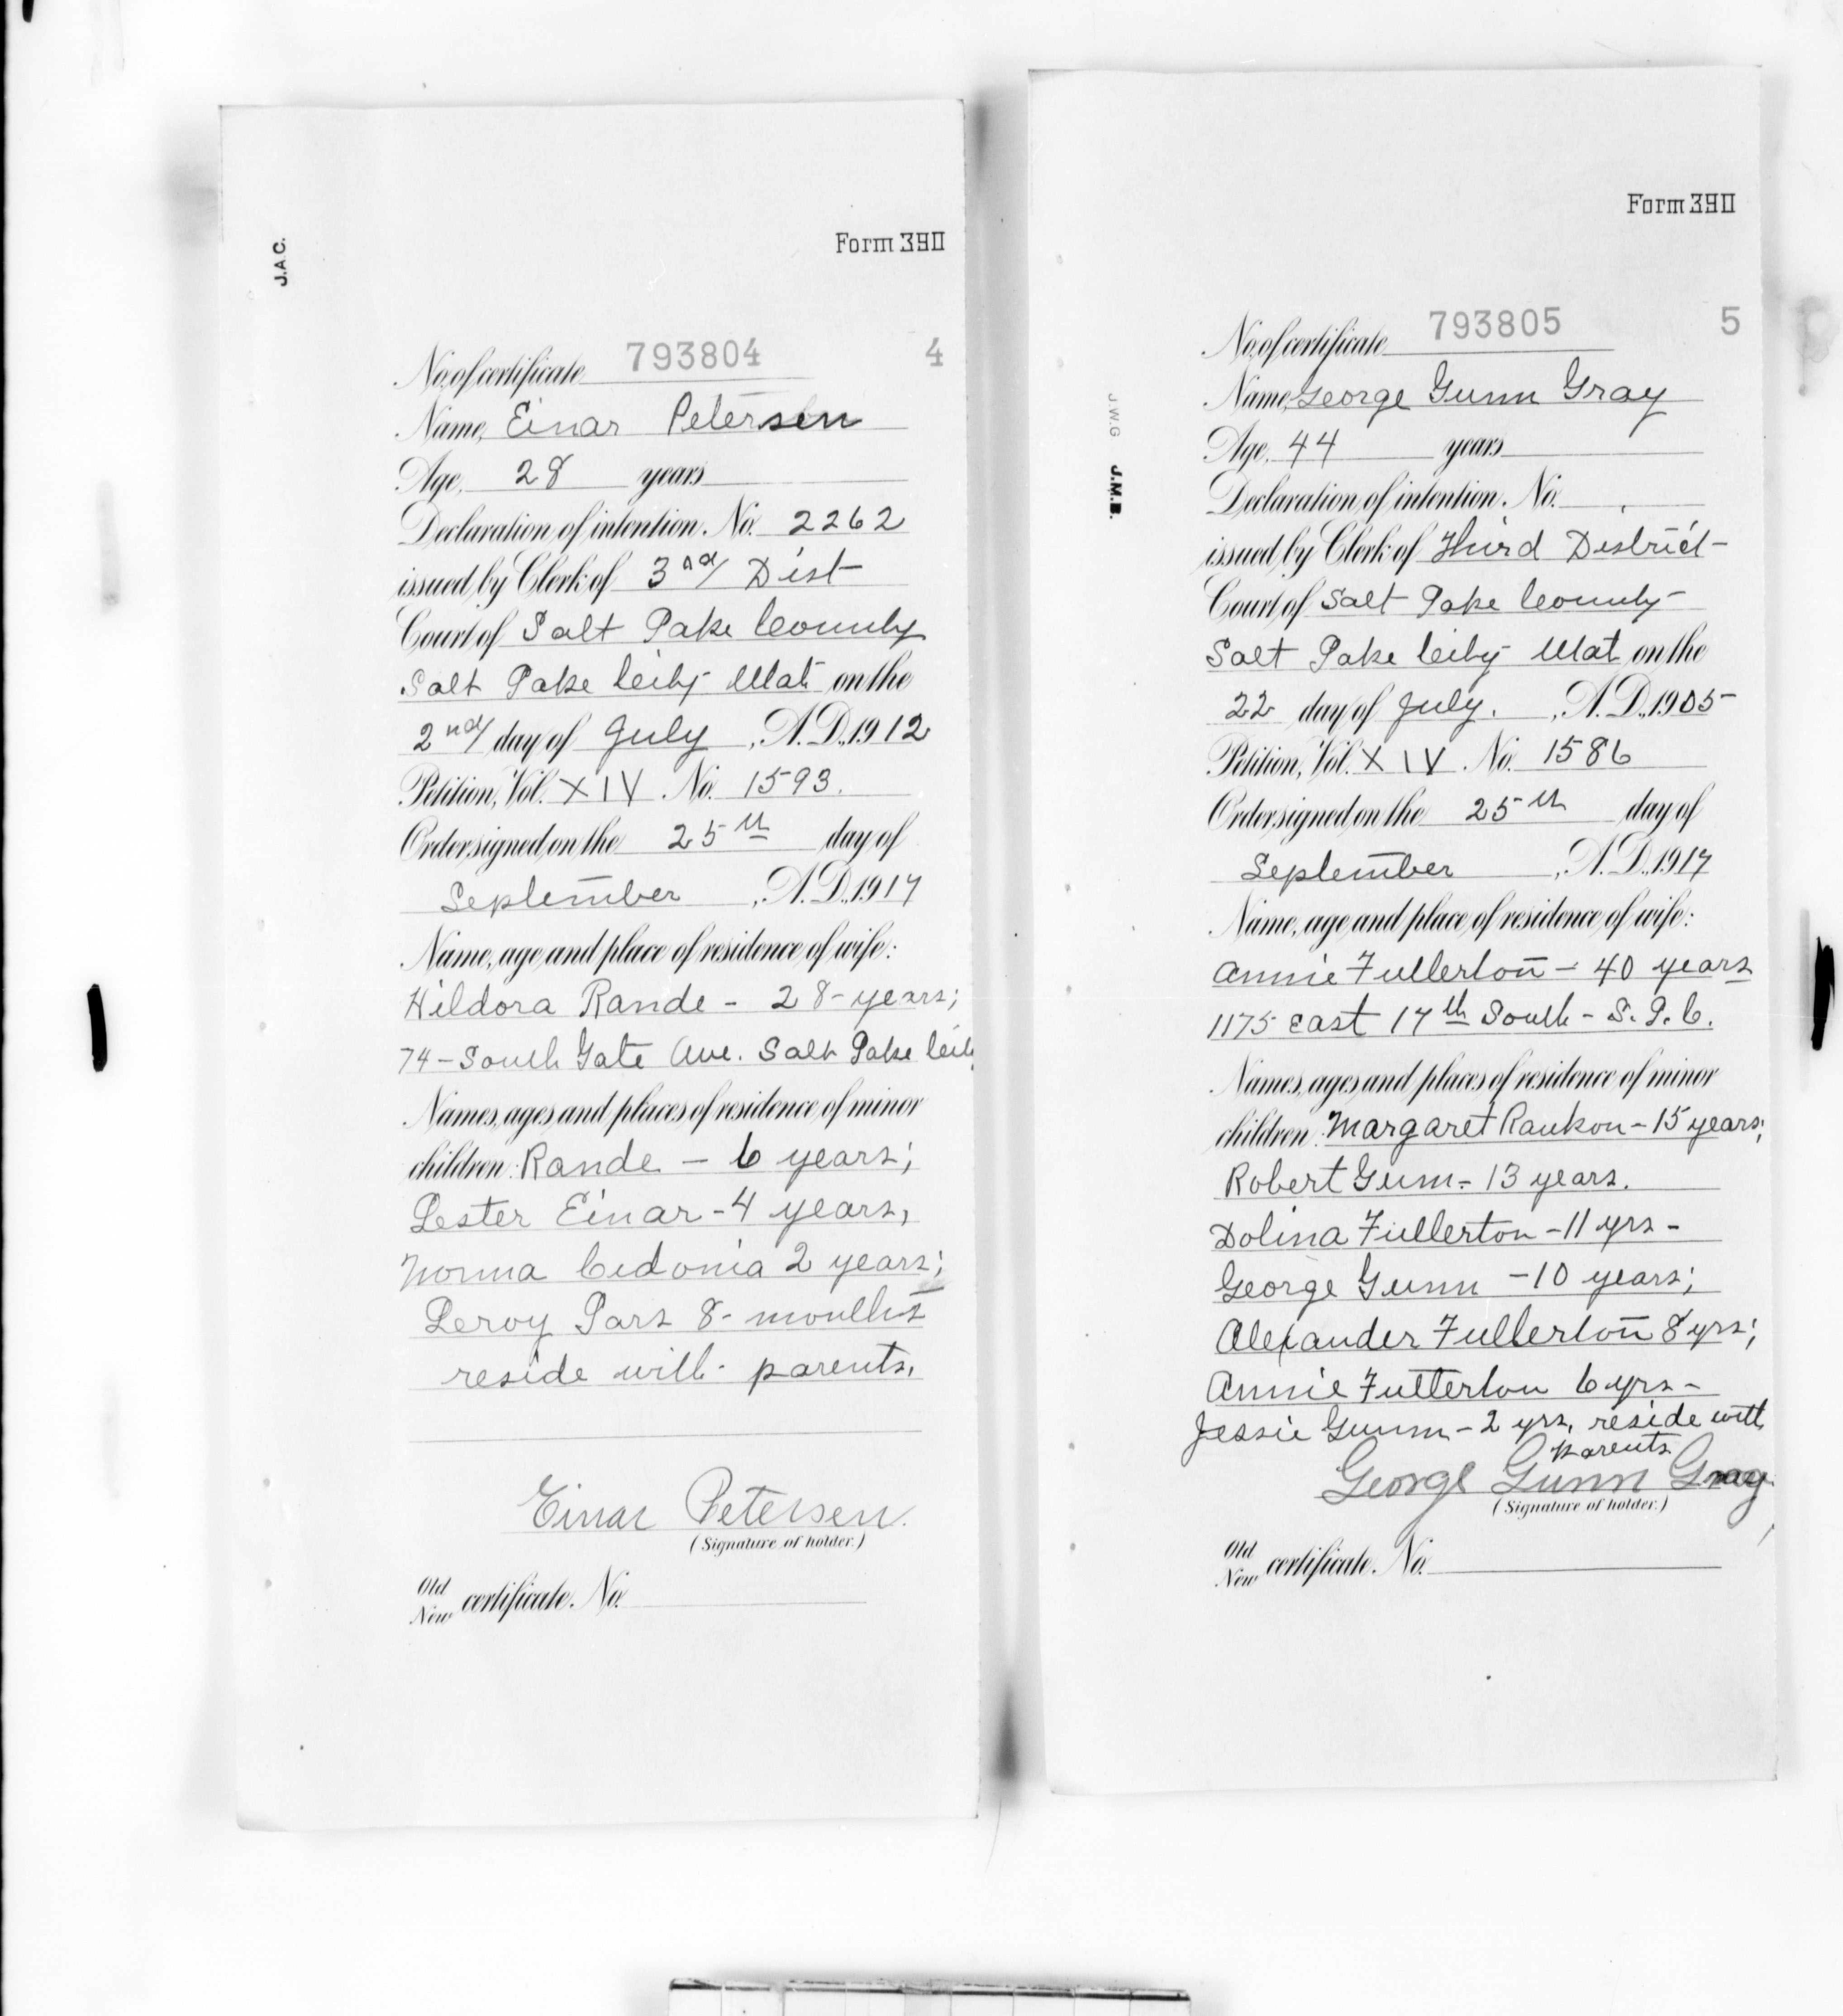 J.A.C.
Form 390
No. of certificate 793804 4
Name, Einar Petersen
Age, 28 years
Declaration of intention, No. 2262
issued by Clerk of 3rd Dist
Court of Salt Lake County
Salt Lake City Utah on the
2nd day of July, A.D., 1912
Petition, Vol. XIV No. 1593.
Order signed on the 25th day of
September, A.D., 1917
Name, age and place of residence of wife:
Hildora Rande - 28 - years;
74 - South Gate Ave. Salt Lake City
Names, ages and places of residence of minor
children: Rande - 6 years;
Lester Einar - 4 years,
Norma Cedonia 2 years;
Leroy Lars 8 - months
reside with parents.
Einar Petersen.
(Signature of holder.)
Old
New certificate, No.
Form 390
J.W.G J.M.B.
No. of certificate 793805 5
Name, George Gunn Gray
Age, 44 years
Declaration of intention, No.
issued by Clerk of Third District
Court of Salt Lake County
Salt Lake City Utah on the
22 day of July, A.D., 1905
Petition, Vol. XIV No. 1586
Order signed on the 25th day of
September, A.D., 1917
Name, age and place of residence of wife:
Annie Fullerton - 40 years
1175 East 17th South - S. L. C.
Names, ages and places of residence of minor
children: Margaret - 15 years;
Robert Gunn - 13 years.
Dolina Fullerton - 11 yrs -
George Gunn - 10 years;
Alexander Fullerton 8 yrs;
Annie Fullerton 6 yrs -
Jessie Gunn - 2 yrs. reside with
parents
George Gunn Gray
(Signature of holder.)
Old
New certificate, No.